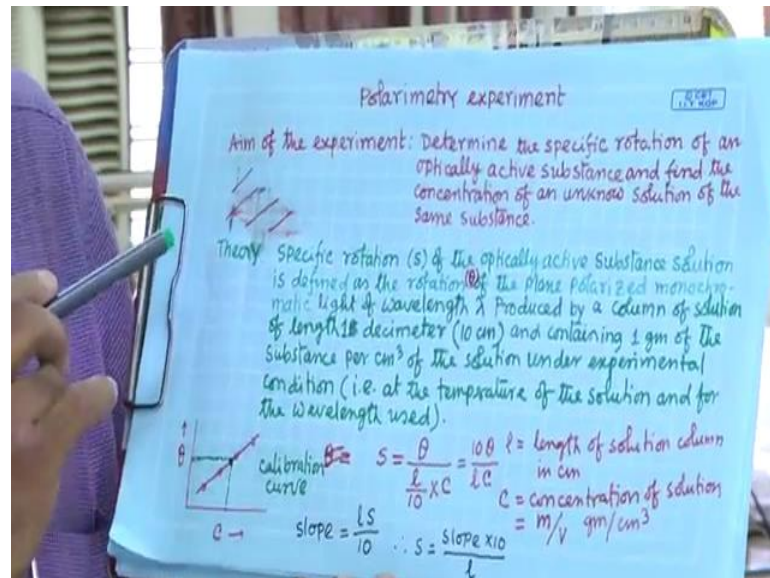 Polarimetry experiment
Aim of the experiment: Determine the specific rotation of an
optically active substance and find the
concentration of an unknow solution of the
same substance.
Theory specific rotation (s) of the optically active substance solution
is defined as the rotation (θ) of the plane polarized monochro-
matic light of wavelength λ produced by a column of solution
of length 1 decimeter (10 cm) and containing 1 gm of the
substance per cm³ of the solution under experimental
condition (i.e. at the temprature of the solution and for
the wavelength used).
θ
calibration
curve
C →
S = θ / (l/10 × C) = 10θ / lC
l = length of solution column
in cm
C = concentration of solution
= m/v gm/cm³
slope = lS/10 ∴ S = slope × 10 / l